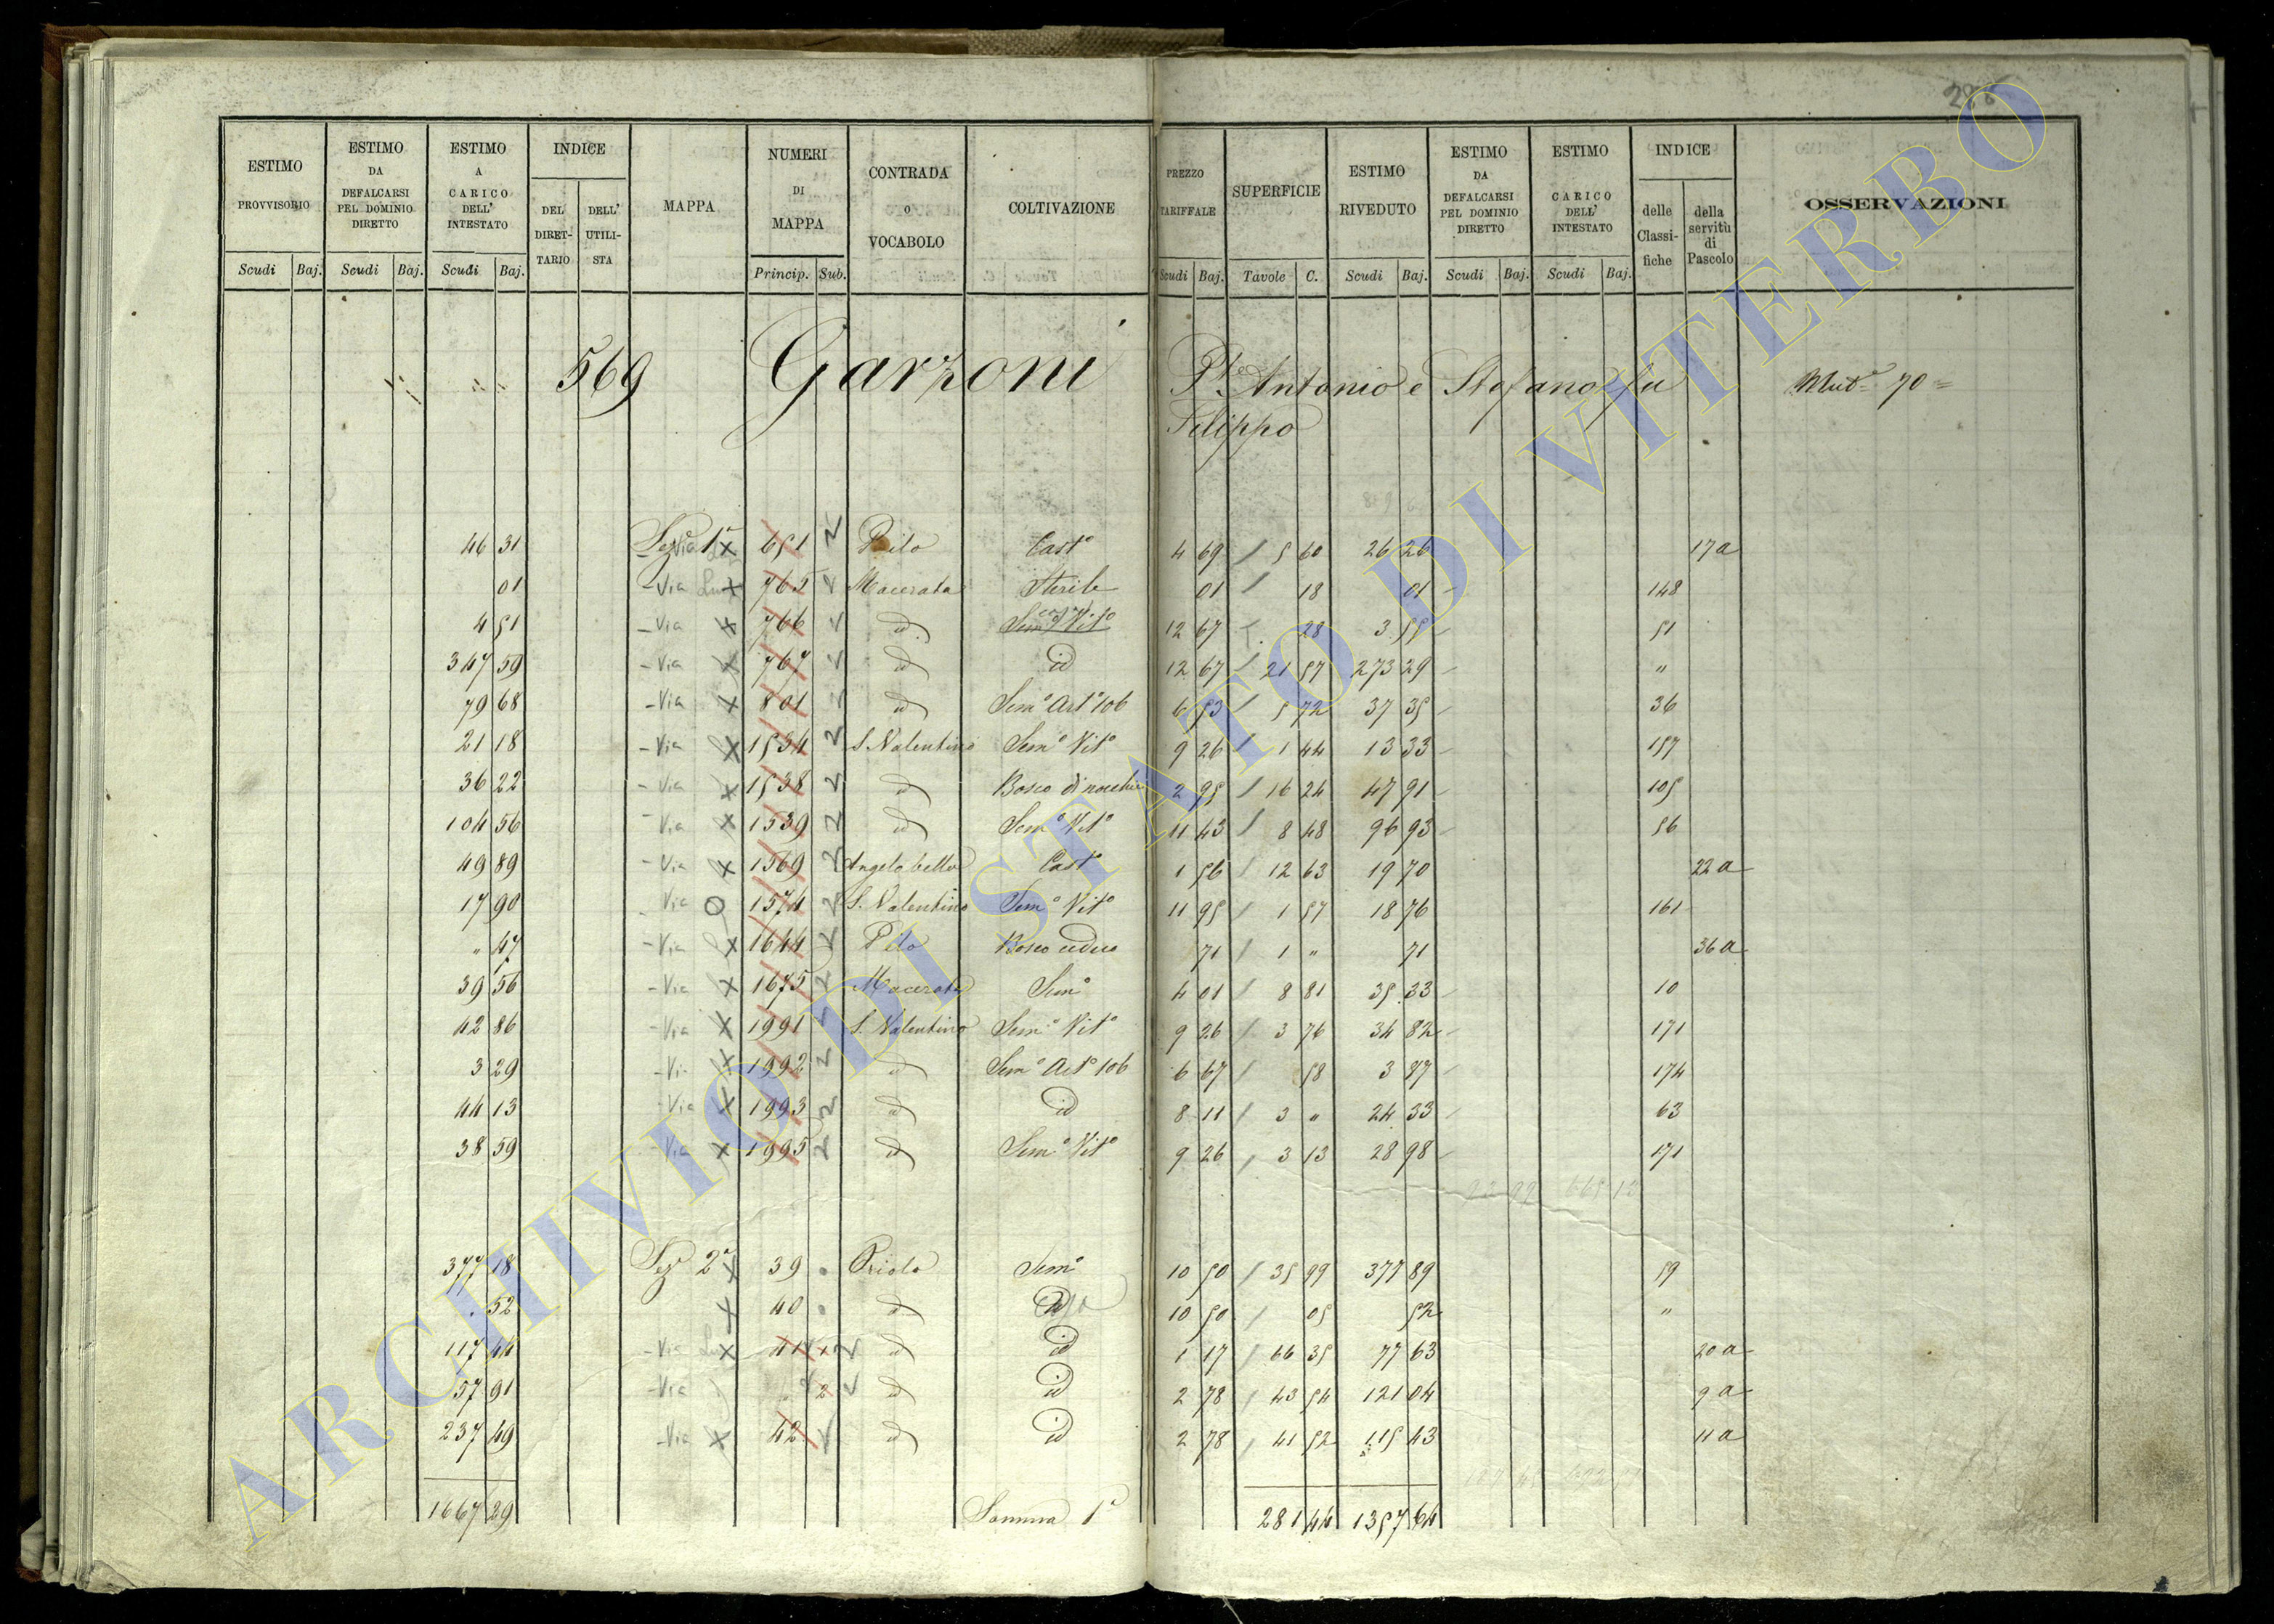 ESTIMO PROVVISORIO Scudi Baj.
ESTIMO DA DEFALCARSI PEL DOMINIO DIRETTO Scudi Baj.
ESTIMO A CARICO DELL' INTESTATO Scudi Baj.
INDICE DEL DIRETTARIO DELL' UTILISTA
MAPPA
NUMERI DI MAPPA Princip. Sub.
CONTRADA O VOCABOLO
COLTIVAZIONE
PREZZO TARIFFALE Scudi Baj.
SUPERFICIE Tavole C.
ESTIMO RIVEDUTO Scudi Baj.
ESTIMO DA DEFALCARSI PEL DOMINIO DIRETTO Scudi Baj.
ESTIMO CARICO DELL' INTESTATO Scudi Baj.
INDICE delle Classifiche della servitù di Pascolo
OSSERVAZIONI
569 Garzoni Antonio e Stefano fu
Filippo
70
46 31 651 Cast° 4 69 5 60 26 26 17a
01 Via 765 Macerata Sterile 01 18 01 148
4 51 Via 766 id 12 67 28 3 55 51
347 59 Via 767 id id 12 67 21 57 273 29 "
79 68 Via 801 id Sem° Art° 106 6 53 5 72 37 35 36
21 18 Via 1534 S. Valentino Sem° Vit° 9 26 1 44 13 33 157
36 22 Via 1538 id Bosco di 2 95 16 24 47 91 105
104 56 Via 1539 id Sem° Vit° 11 43 8 48 96 93 56
49 89 Via 1569 Angelo bello Cast° 1 56 12 63 19 70 22a
17 90 Via 1574 S. Valentino Sem° Vit° 11 95 1 57 18 76 161
" 47 Via 1644 Pilo Bosco ceduo 71 1 " 71 36a
39 56 Via 1675 Macerata Sem° 4 01 8 81 35 33 10
42 86 Via 1991 S. Valentino Sem° Vit° 9 26 3 76 34 82 171
3 29 Via 1992 id Sem° Art° 106 6 67 58 3 87 174
44 13 Via 1993 id id 8 11 3 " 24 33 63
38 59 Via 1995 id Sem° Vit° 9 26 3 13 28 98 171
377 18 Sez 2ª 39 Oriolo Sem° 10 50 35 99 377 89 59
52 40 id 10 50 05 52 "
117 44 Via 41 1 id id 1 17 66 35 77 63 20a
57 91 Via 2 id id 2 78 43 54 121 04 9a
237 49 Via 42 id id 2 78 41 52 115 43 11a
1667 29 Somma 1ª 281 44 1357 64
ARCHIVIO DI STATO DI VITERBO